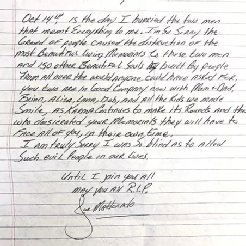 Oct 14th is the day I buried the two men
that meant Everything to me. I'm so sorry the
Greed of people caused the distruction of the
most Beautiful living Memorials to these two men
and 150 other Beautiful Souls built by people
than all over the world anyone could have asked for.
you two are in Good Company now with Mom + Dad,
Brian, Alisa, Lynn, Deb, and all the kids we made
Smile, as Karma Continues to make its Rounds and those
who desicrated your Memorials they will have to
Face all of you, in their own time.
I am truly sorry I was so blind as to allow
Such evil People in our lives.
Until I join you all
may you all R.I.P.